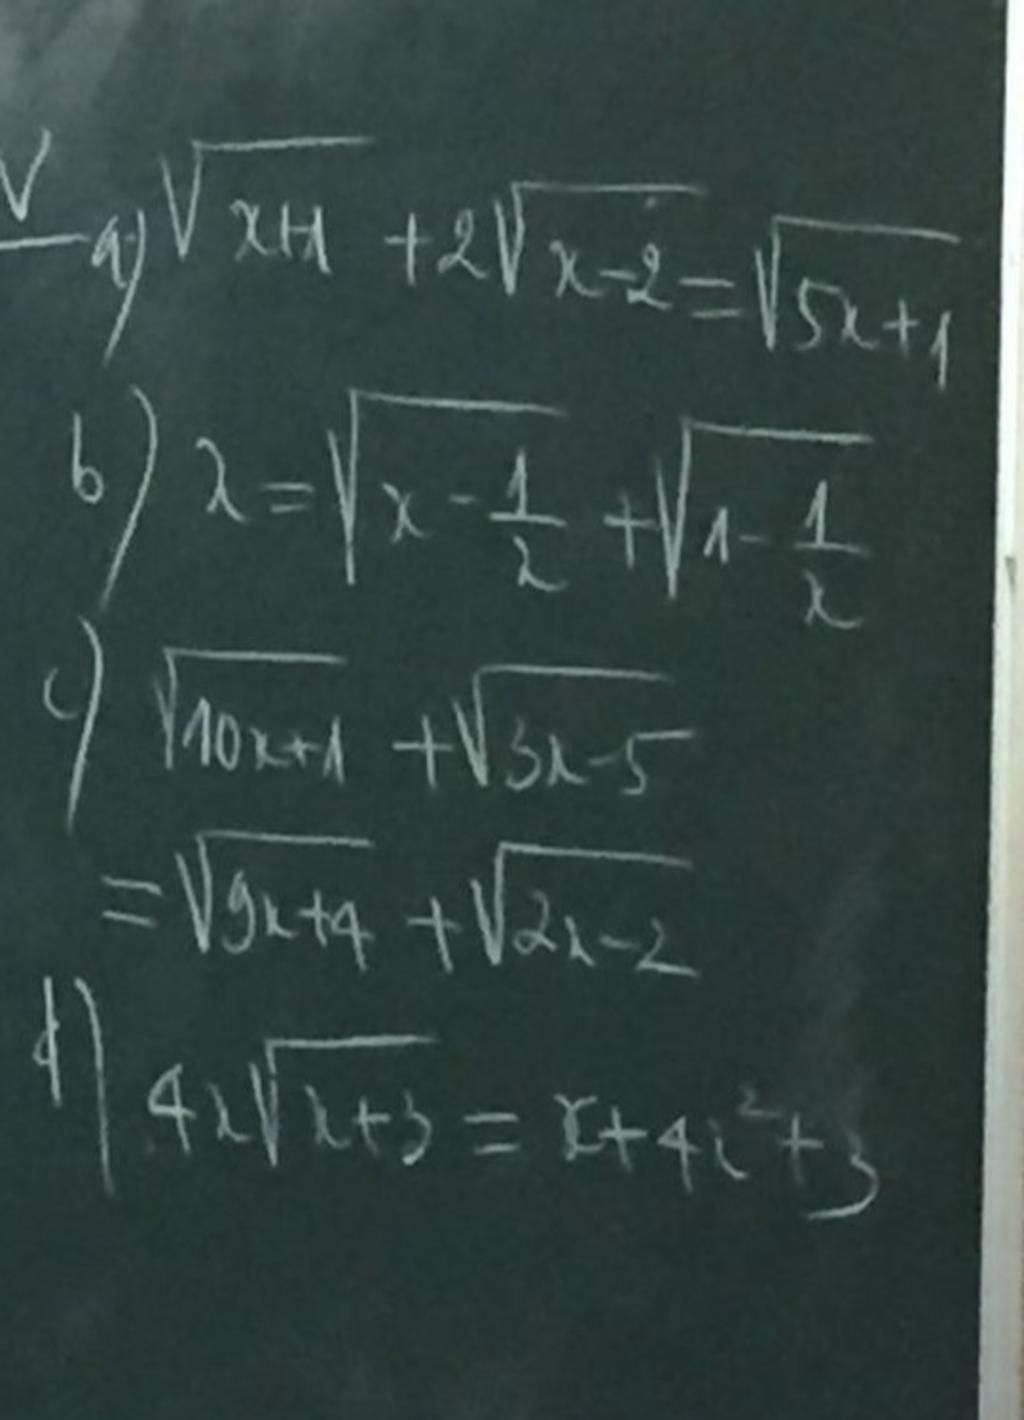 V a) √(x+1) + 2√(x-2) = √(5x+1)
b) x = √(x - 1/2) + √(1 - 1/x)
c) √(10x+1) + √(3x-5)
= √(9x+4) + √(2x-2)
d) 4x√(x+3) = x+4x²+3